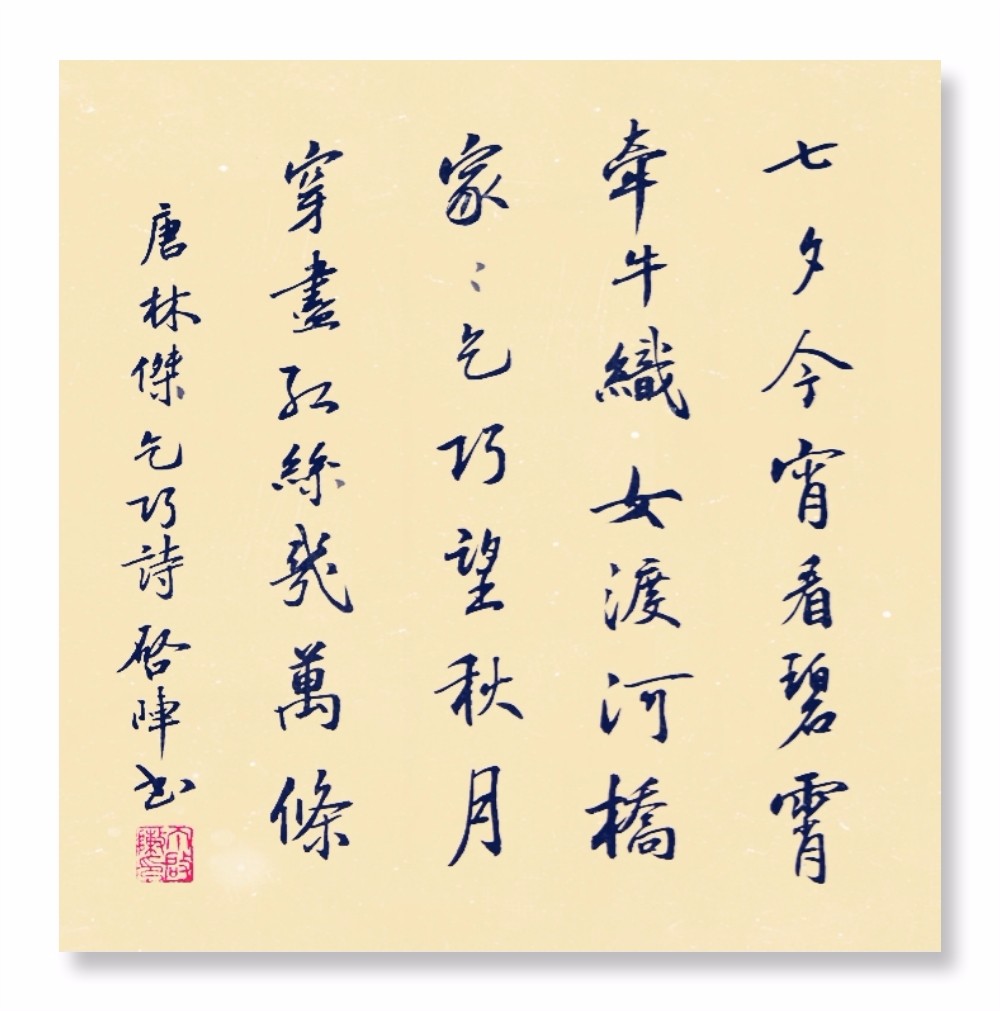 七夕今宵看碧霄
牽牛織女渡河橋
家〻乞巧望秋月
穿盡紅絲幾萬條
唐林傑乞巧詩啓陣書